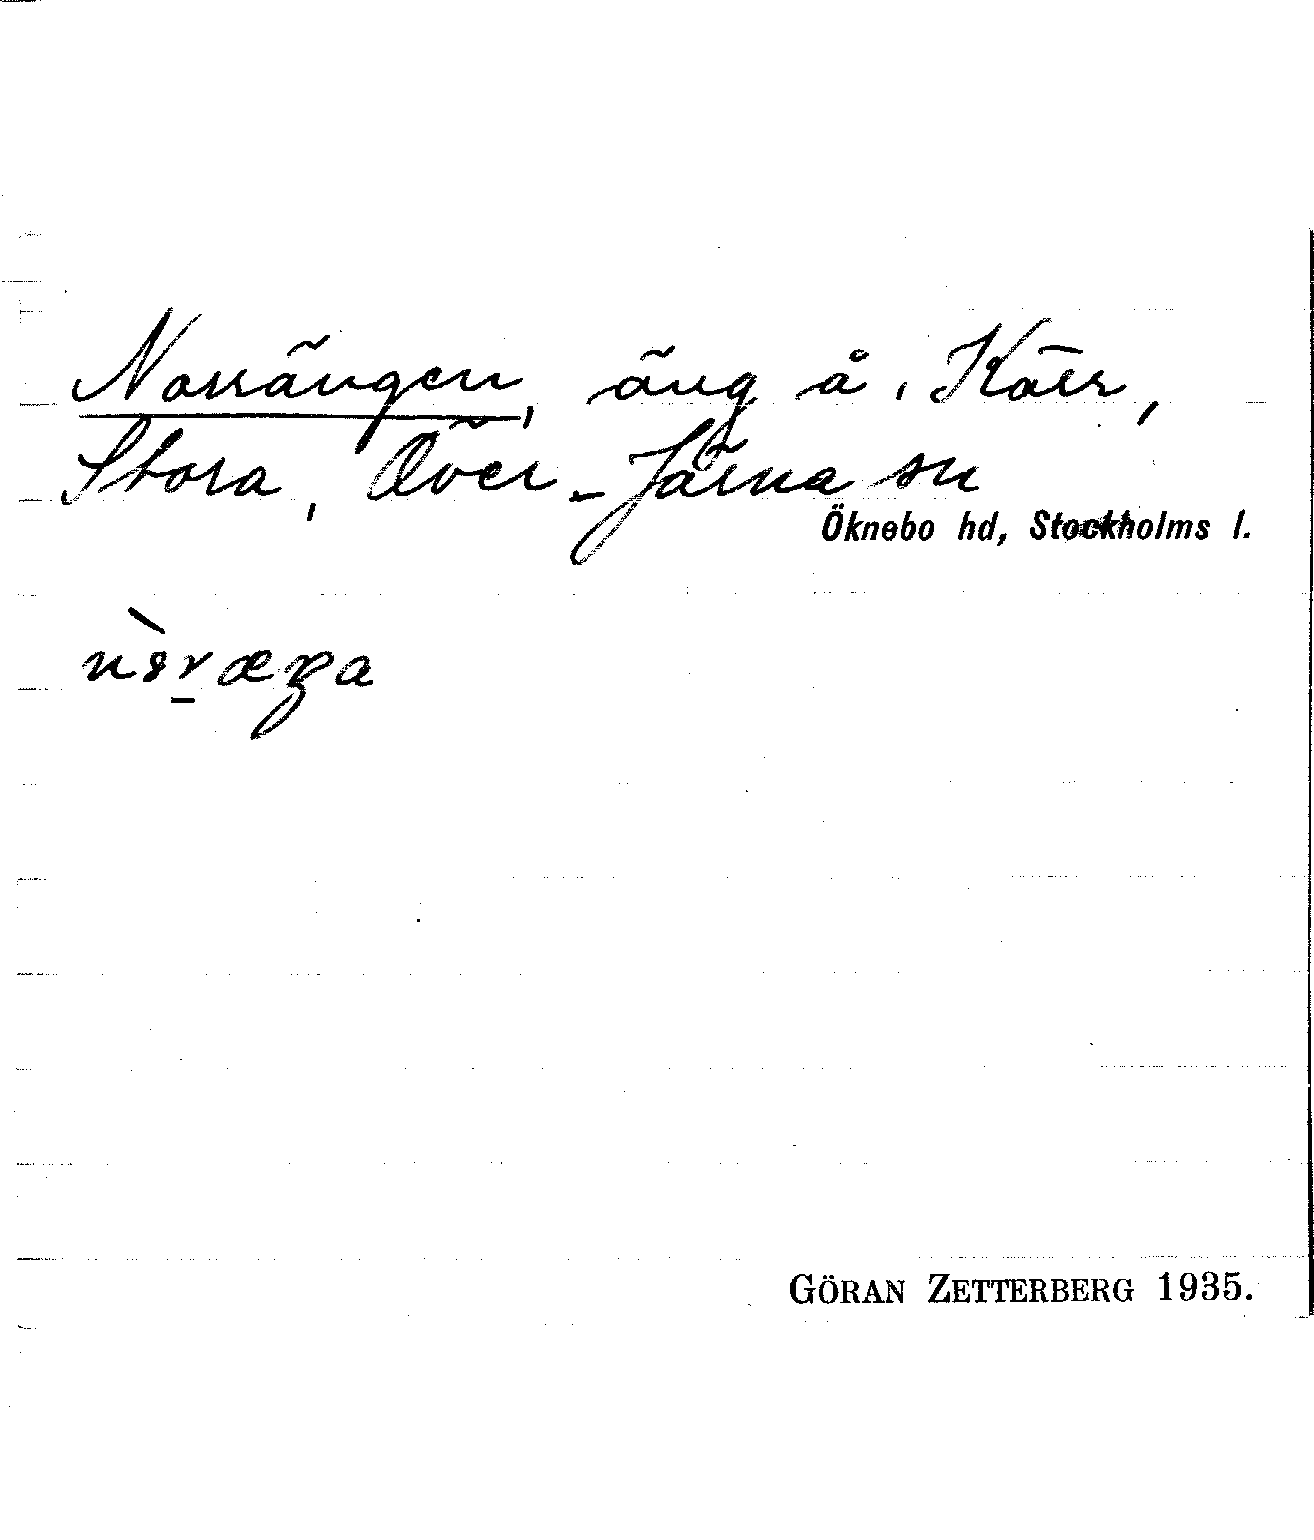 Norrängen, äng å Kärr,
Stora, Över-Järna sn
Öknebo hd, Stockholms l.
GÖRAN ZETTERBERG 1935.